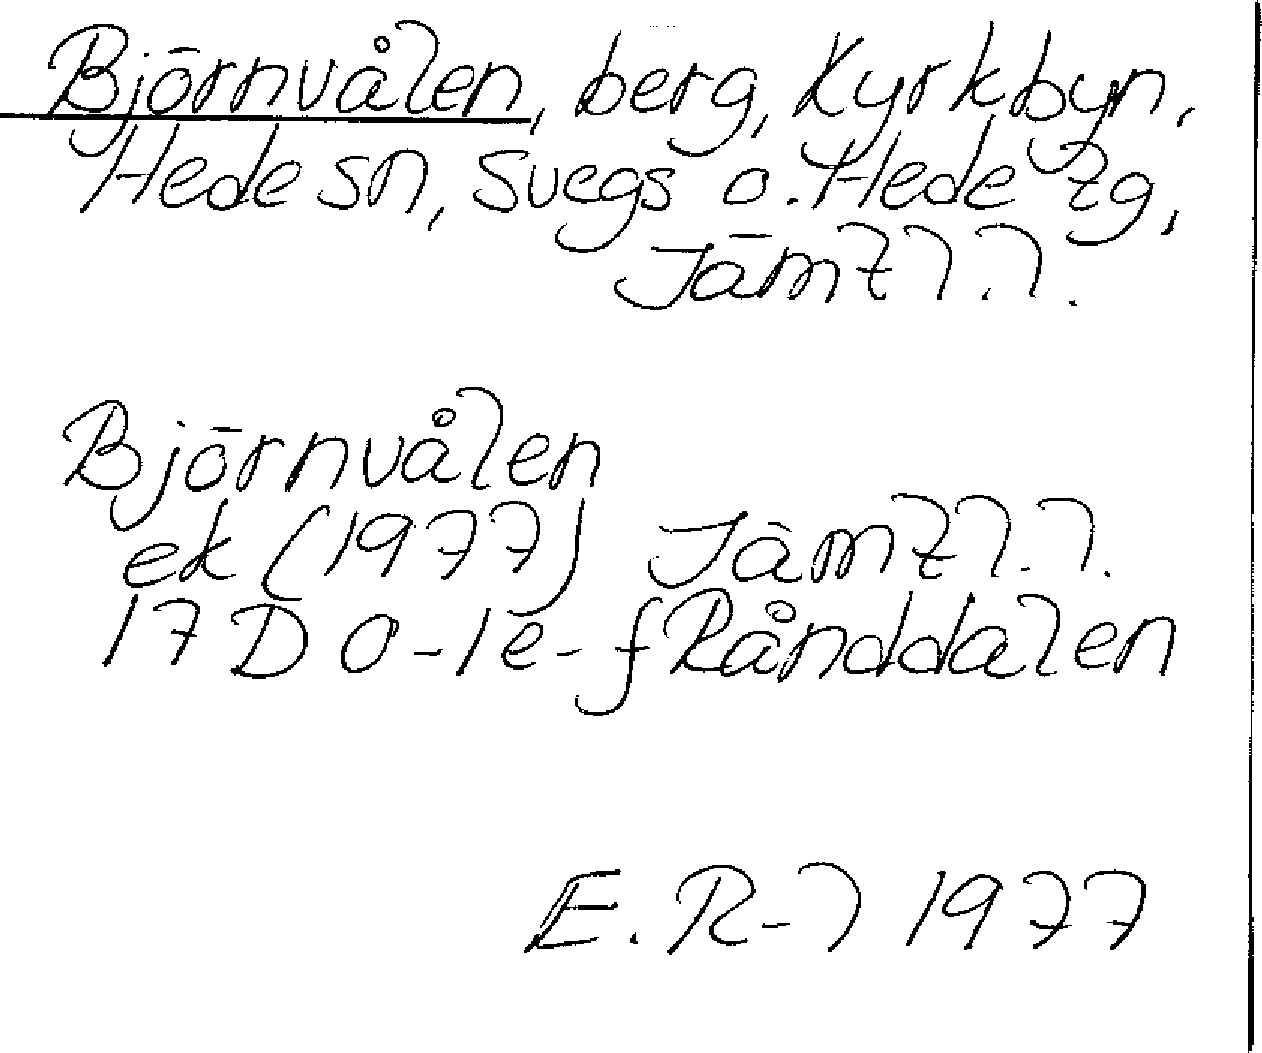 Björnvålen, berg, Kyrkbyn,
Hede sn, Svegs o. Hede tg,
Jämtl. l.
Björnvålen
ek (1977) Jämtl. l.
17 D 0-1e-f Rånddalen
E. R-l 1977